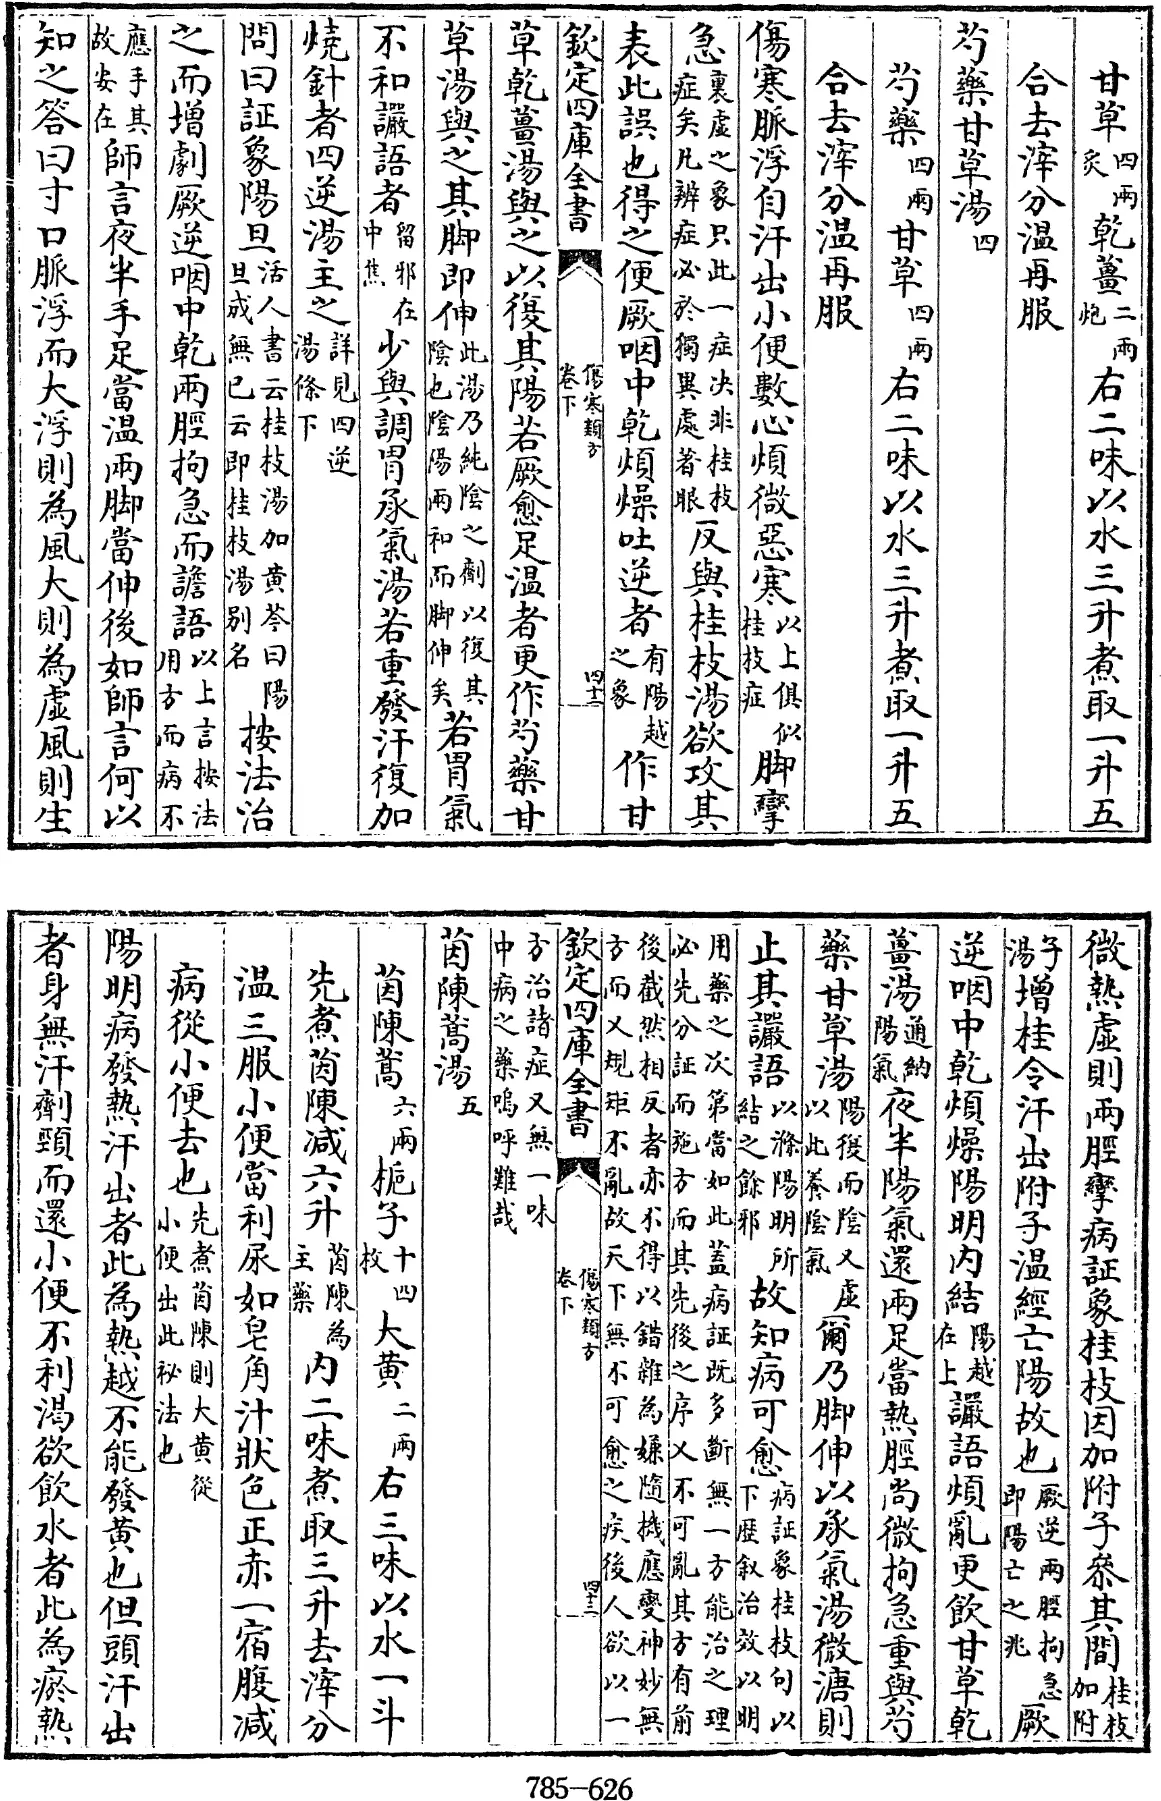 甘草四兩炙乾薑二兩炮右二味以水三升煮取一升五
合去滓分温再服
芍藥甘草湯四
芍藥四兩甘草四兩右二味以水三升煮取一升五
合去滓分温再服
傷寒脈浮自汗出小便數心煩微惡寒以上俱似桂枝症脚攣
急裏虚之象只此一症決非桂枝症矣凡辨症必於獨異處著眼反與桂枝湯欲攻其
表此誤也得之便厥咽中乾煩燥吐逆者有陽越之象作甘
欽定四庫全書 傷寒類方卷下 四十二
草乾薑湯與之以復其陽若厥愈足温者更作芍藥甘
草湯與之其脚即伸此湯乃純陰之劑以復其陰也陰陽兩和而脚伸矣若胃氣
不和讝語者留邪在中焦少與調胃承氣湯若重發汗復加
燒針者四逆湯主之詳見四逆湯條下
問曰証象陽旦活人書云桂枝湯加黄芩曰陽旦成無已云即桂枝湯别名按法治
之而增劇厥逆咽中乾兩脛拘急而譫語以上言按法用方而病不
應手其故安在師言夜半手足當温兩脚當伸後如師言何以
知之答曰寸口脈浮而大浮則為風大則為虚風則生
微熱虚則兩脛攣病証象桂枝因加附子叅其間桂枝加附
子湯增桂令汗出附子温經亡陽故也厥逆兩脛拘急即陽亡之兆厥
逆咽中乾煩燥陽明内結陽越在上讝語煩亂更飲甘草乾
薑湯通納陽氣夜半陽氣還兩足當熱脛尚微拘急重與芍
藥甘草湯陽復而陰又虚以此養陰氣爾乃脚伸以承氣湯微溏則
止其讝語以滌陽明所結之餘邪故知病可愈病証象桂枝句以下歴叙治效以明
用藥之次第當如此蓋病証既多斷無一方能治之理必先分証而施方而其先後之序又不可亂其方有前
後截然相反者亦不得以錯雜為嫌隨機應變神妙無方而又規矩不亂故天下無不可愈之疾後人欲以一
欽定四庫全書 傷寒類方卷下 四十三
方治諸症又無一味中病之藥嗚呼難哉
茵陳蒿湯五
茵陳蒿六兩梔子十四枚大黄二兩右三味以水一斗
先煮茵陳減六升茵陳為主藥内二味煮取三升去滓分
温三服小便當利尿如皂角汁狀色正赤一宿腹減
病從小便去也先煮茵陳則大黄從小便出此秘法也
陽明病發熱汗出者此為熱越不能發黄也但頭汗出
者身無汗劑頸而還小便不利渴欲飲水者此為瘀熱
785-626